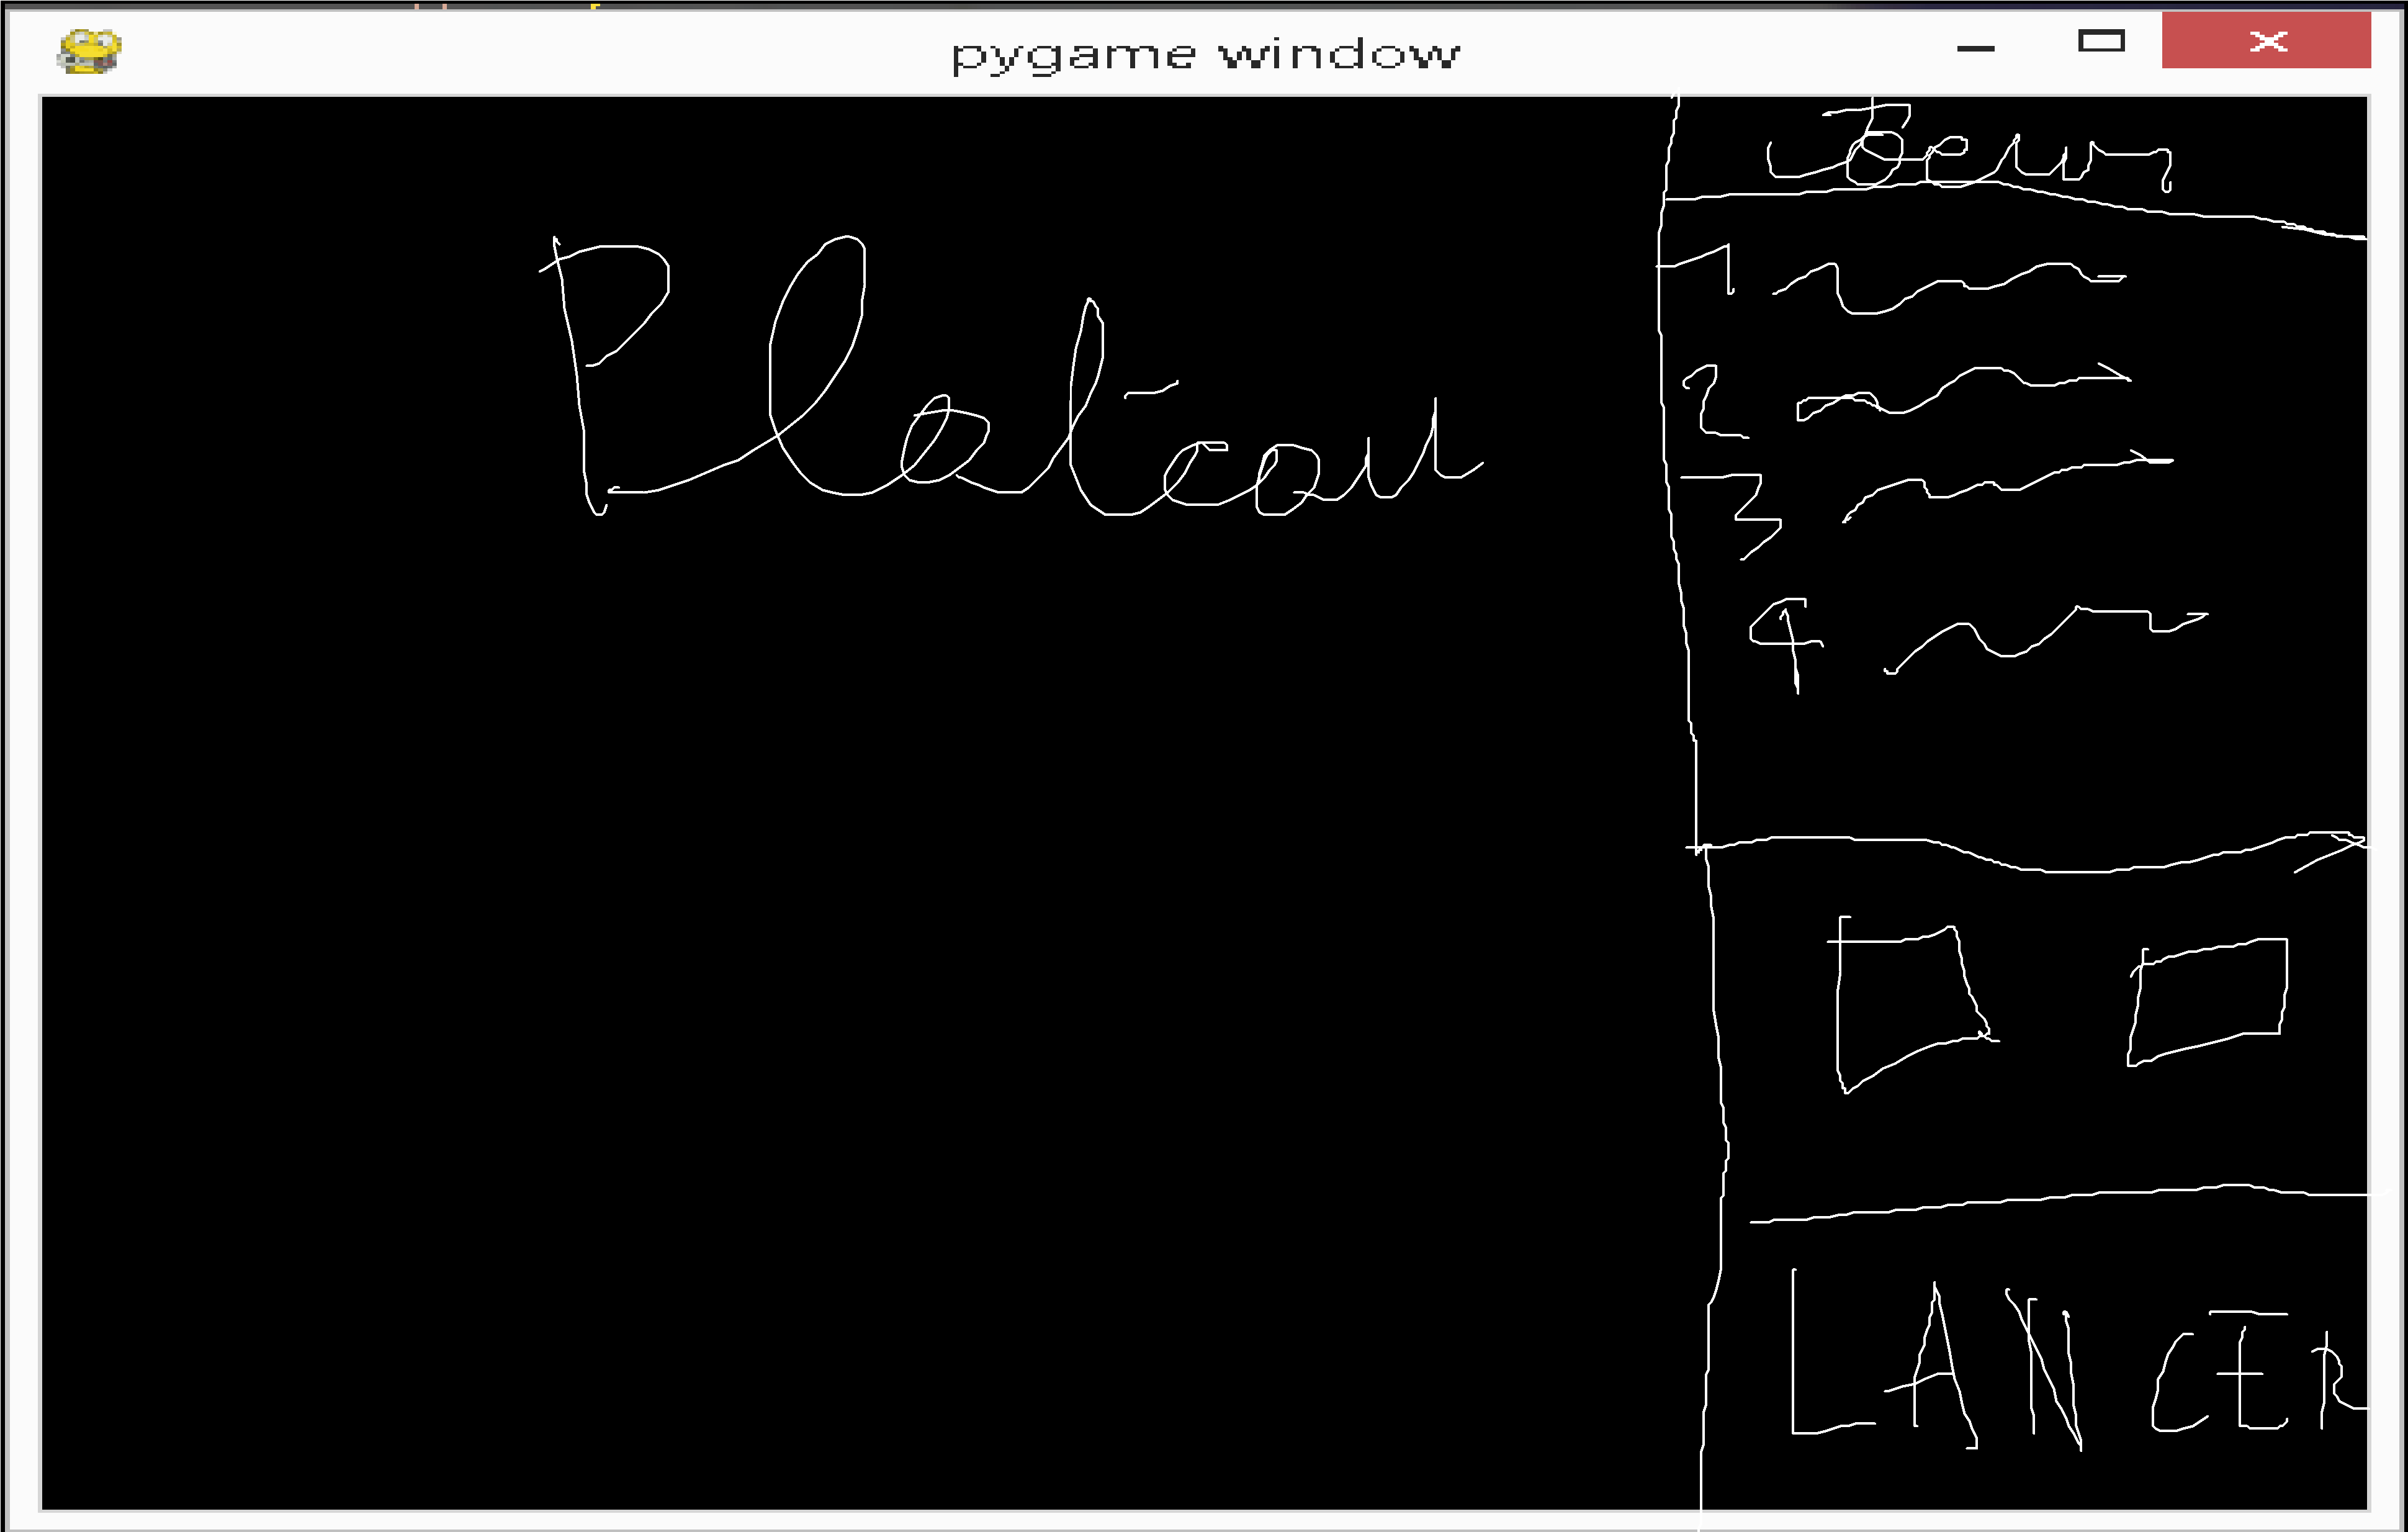 pygame window
Plateau
1
2
3
4
LANCER